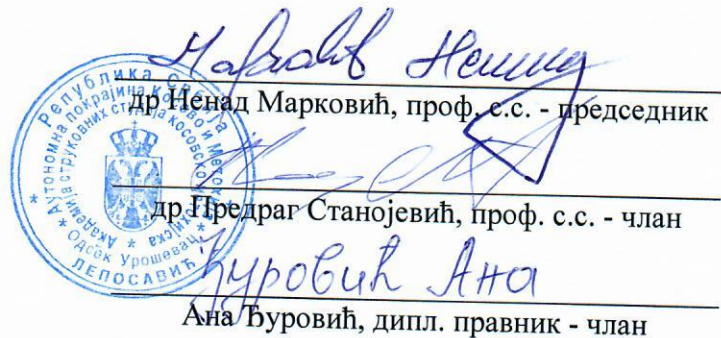 Марковић Ненад
др Ненад Марковић, проф. с.с. - председник
др Предраг Станојевић, проф. с.с. - члан
Ђуровић Ана
Ана Ђуровић, дипл. правник - члан
Република Србија
Аутономна покрајина Косово и Метохија
Академија струковних студија косовско
Одсек Урошевац
ЛЕПОСАВИЋ